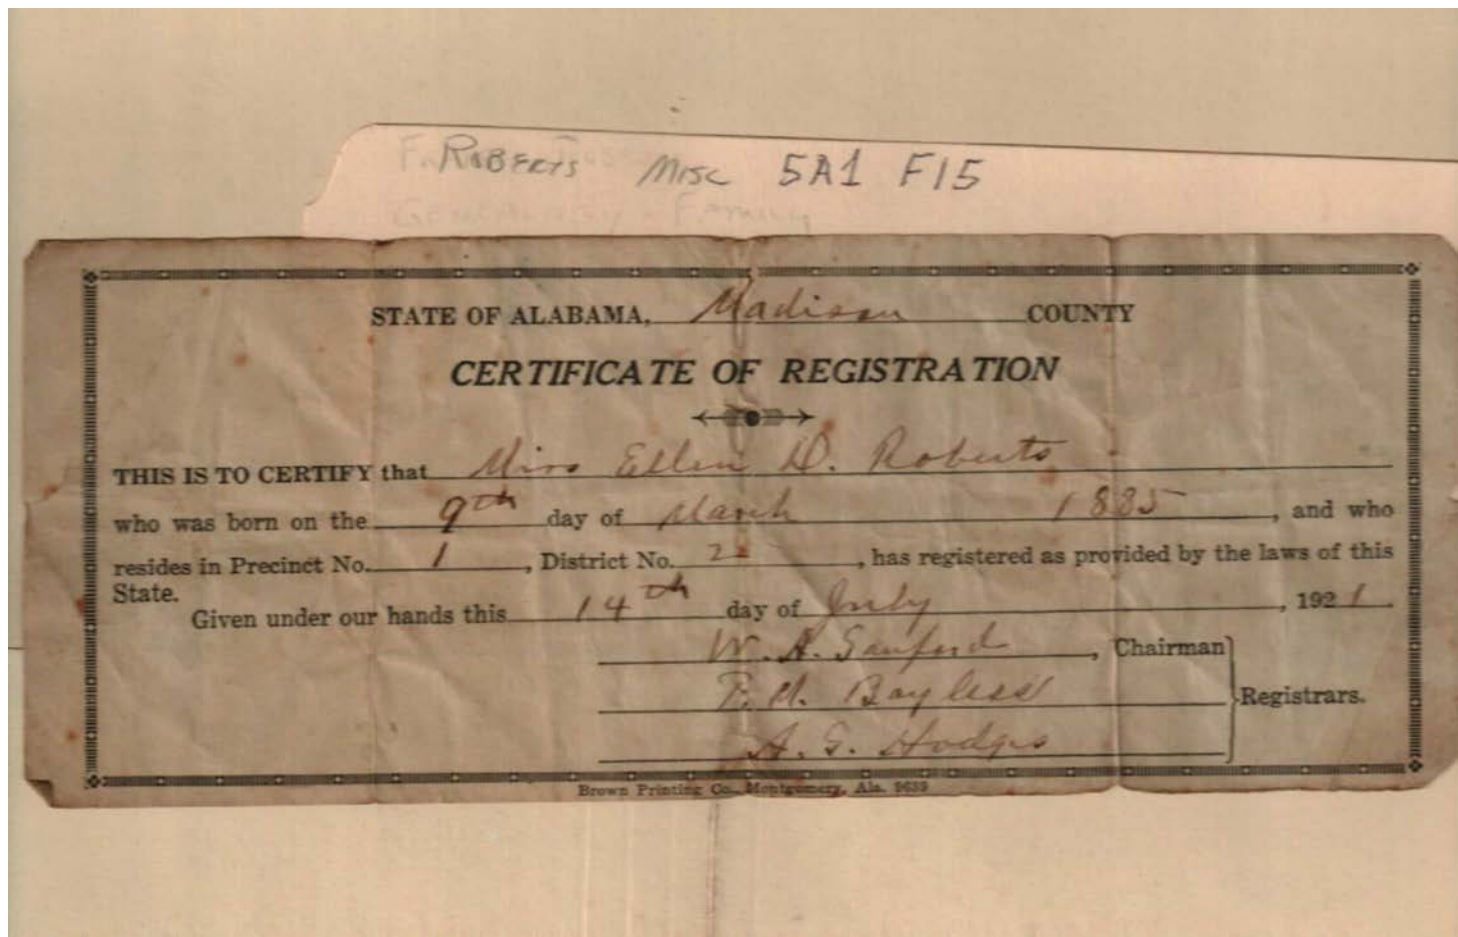 F. ROBERTS Misc 5A1 F15
GENEALOGY - FAMILY
STATE OF ALABAMA, Madison COUNTY
CERTIFICATE OF REGISTRATION
THIS IS TO CERTIFY that Miss Ellen D. Roberts
who was born on the 9th day of March 1885, and who
resides in Precinct No. 1, District No. 2, has registered as provided by the laws of this
State.
Given under our hands this 14th day of July, 1921.
W. A. Sanford, Chairman
Bayless Registrars.
A. G. Hodges
Brown Printing Co., Montgomery, Ala. 9639